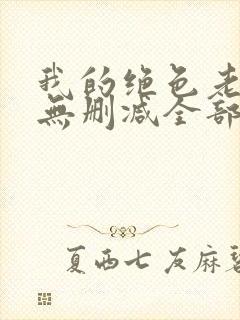 我的绝色老
無删减全部
夏西七友麻碧